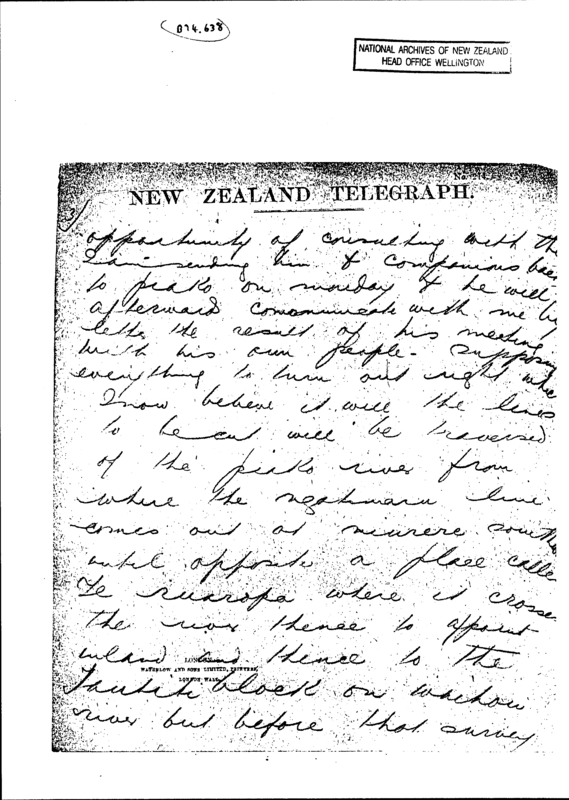 074.638
NATIONAL ARCHIVES OF NEW ZEALAND
HEAD OFFICE WELLINGTON
No.
3)
NEW ZEALAND TELEGRAPH.
opportunity of consulting with the
I am sending him & companions bac
to piako on monday & he will
afterward communicate with me by
letter the result of his meeting
with his own people - supposing
everything to turn out right whic
I now believe it will the lines
to be cut will be traversed
of the piako river from
where the line
comes out at south
until opposite a place calle
Te ruaropa where it crosse
the river thence to a point
inland and thence to the
LONDON
WATERLOW AND SONS LIMITED, PRINTERS,
LONDON WALL.
block on waihou
river but before that survey